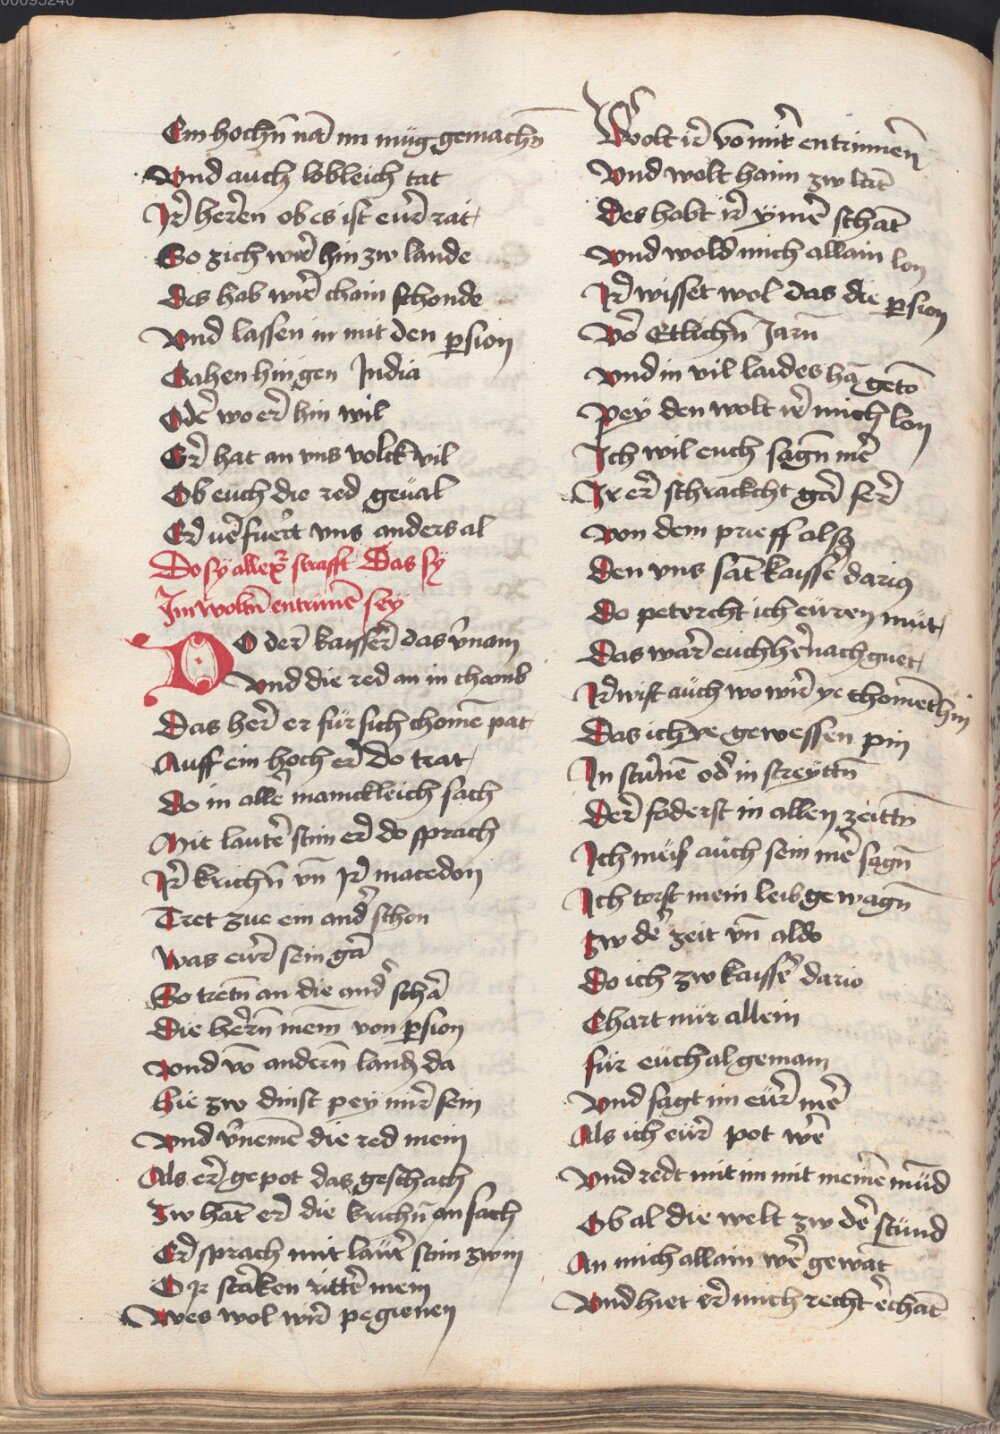 00095240
Ein hochn̄ nā im müg gemachn̄
Vnd auch lobleich tat
Ir̄ heren ob es ist eur̄ rat
So zich wir̄ hin zw lande
Des hab wir̄ chain schonde
Vnd lassen in mit den ꝑsion
Gahen hin gen India
Oder̄ wo er hin wil
Er̄ hat an vns volck vil
Ob euch die red geual
Er vēfuert vns anders al
Do sy allexr̄ strafft Das sy
Im woltn̄ entrinnē sey
DO der kaisser̄ das v̄nam
Vnd die red an in chomb
Das her̄ er für sich chomē pat
Auff ein hoch er do trat
Do in aller̄ manickleich sach
Mit lauter̄ stim er do sprach
Ir̄ krichn̄ vn̄ Ir̄ macedon
Tret zue ein ander̄ schon
Was eur̄ sein gar̄
So tretn̄ an die ander̄ schar̄
Die hern̄ mein von ꝑsion
Vnd vō andern̄ landn̄ da
Hie zw dinst pey mir̄ sein
Vnd v̄nemē die red mein
Als er gepot das geschach
Zw hāt er die krichn̄ an sach
Er sprach mit lauter̄ stim zw im
O Ir starken ritter̄ mein
Wes wol wir̄ pegienen
Wolt ir̄ vō mir̄ entrinnen̄
Vnd wolt haim zw lāt
Des habt ir̄ ymer̄ schāt
Vnd wold mich allain lon
Ir̄ wisset wol das die ꝑsion
Vor̄ Etlichn̄ Jarn̄
Vnd in vil laides hā getō
Pey den wolt ir̄ mich lon
Ich wil euch sagn̄ mer̄
Ir er schrackcht gar̄ ser̄
Von dem prieff also
Den vns sāt kaisser̄ darius
Do petercht ich eurren müt
Das war̄ euch her̄nach guet
Ir̄ wist auch wo wir̄ ye chomē hin
Das ich ye gewessen pin
In sturmē oder̄ in streyttn̄
Der̄ foderst in allen zeittn̄
Ich müs auch sein mer̄ sagn̄
Ich torst mein leib gewagn̄
Zw der̄ zeit vn̄ aldo
Do ich zw kaisser̄ dario
Chart nür allein
für euch al gemain
Vnd sagt im eur̄ mer̄
Als ich eur̄ pot wer̄
Vnd redt mit im mit meinē mūd
Ob al die welt zw der̄ stund
An mich allain wer̄ gewāt
Vnd hiet er mich recht er̄chāt